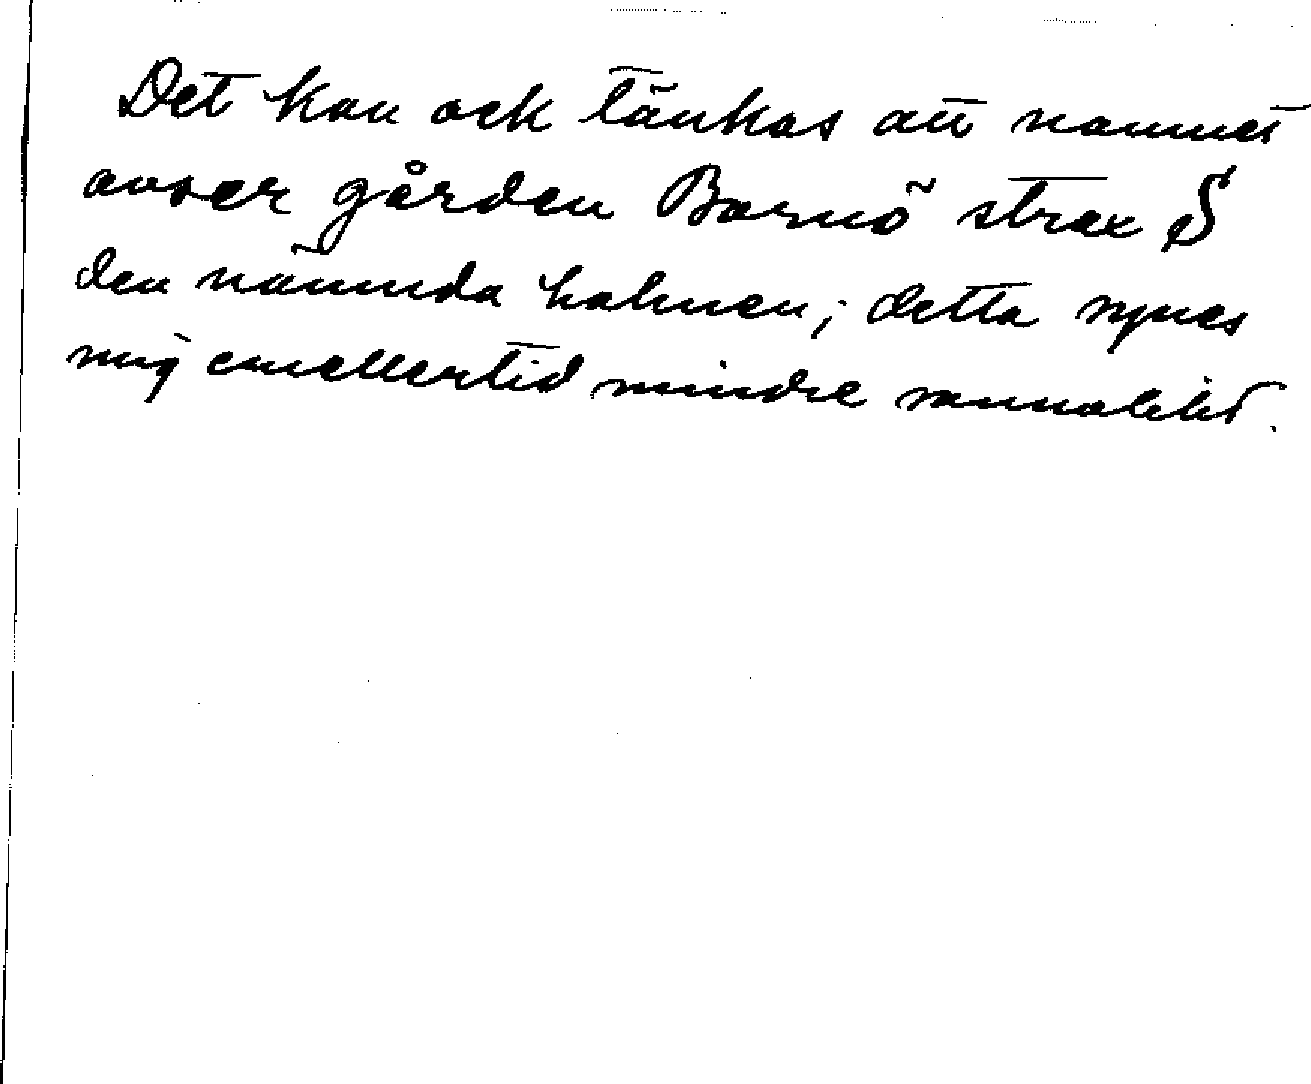 Det kan ock tänkas att namnet
avser gården Barnö strax S
den nämnda holmen; detta synes
mig emellertid mindre sannolikt.